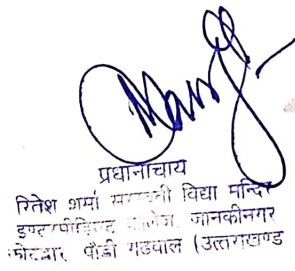 प्रधानाचार्य
रितेश शर्मा सरस्वती विद्या मन्दिर
इण्टरमीडिएट कालेज, जानकीनगर
कोटद्वार, पौडी गढवाल (उत्तराखण्ड